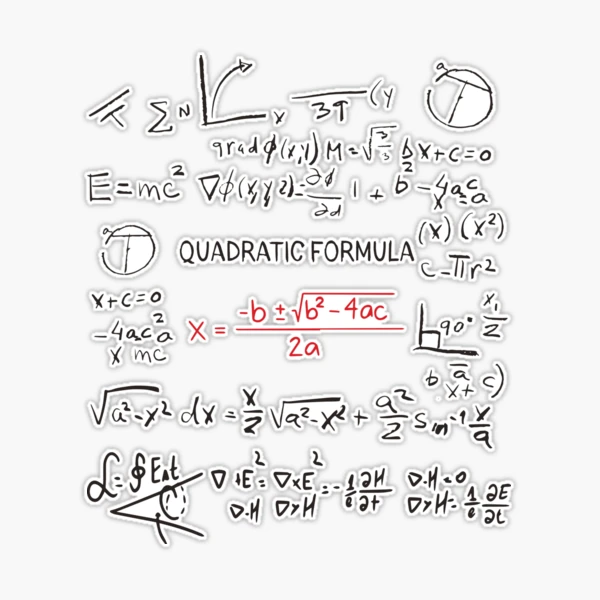 Σ N X
3π (y
grad ϕ(x,y) M = √3/3 b/2 x+c=0
E=mc²
∇ϕ(x,y2)=∂ϕ/∂d 1 + b - 4ac
x = a
(x) (x²)
QUADRATIC FORMULA
c - πr²
x+c=0
-4ac²a
x mc
x = -b ± √b² - 4ac / 2a
90° x₁/2
b a/x+ c)
√a²-x² dx = x/2 √a²-x² + a²/2 sin⁻¹ x/a
L = ∮ E∧t
∇+E² = ∇xE² = -1/e ∂H/∂t ∇·H=0
∇·H ∇yH ∇yH- 1/e ∂E/∂t